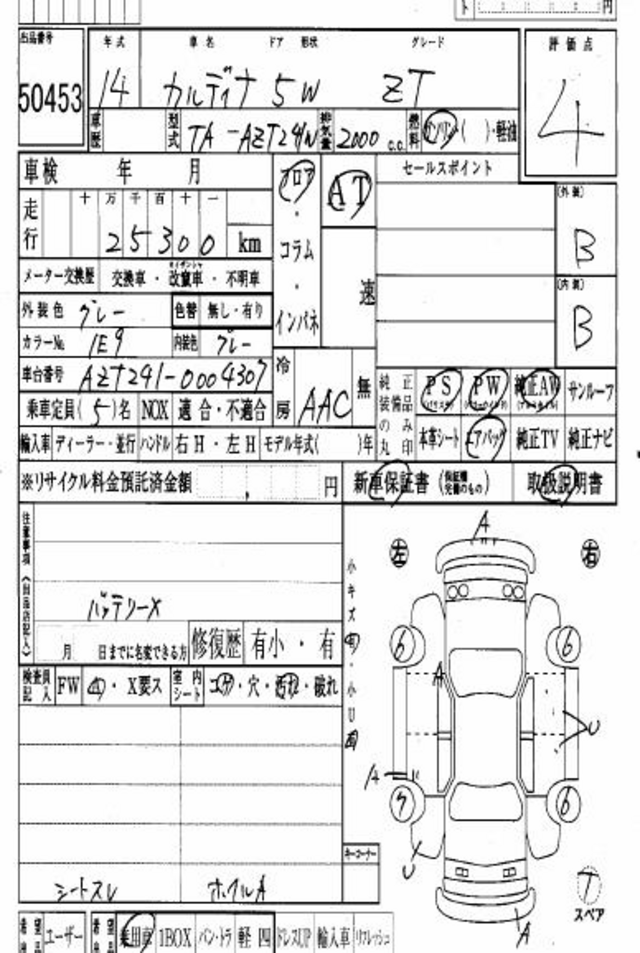 ト 円
出品番号 年式 車名 ドア 形状 グレード 評価点
50453 14 カルディナ 5W ZT 4
車歴 型式 TA-AZT241W 排気量 2000 c.c. 燃料 ガソリン・( )・軽油
車検 年 月 フロア AT セールスポイント (外装)
走行 十 万 千 百 十 一
25300 km ・コラム・インパネ 速 B
メーター交換歴 交換車・改竄車・不明車 (内装)
外装色 グレー 色替 無し・有り B
カラーNo. 1E9 内装色 グレー
車台番号 AZT241-0004307 冷房 AAC 無 純正装備品のみ丸印 PS PW 純正AW サンルーフ
乗車定員(5)名 NOX 適合・不適合 本革シート エアバッグ 純正TV 純正ナビ
輸入車 ディーラー・並行 ハンドル 右H・左H モデル年式( )年
※リサイクル料金預託済金額 , 円 新車保証書 (保証継承可能のもの) 取扱説明書
注意事項(出品店記入)
A
左 右
小キズ有・小U
バッテリーX
6 6
月 日までに名変できる方 修復歴 有小・有
検査員記入 FW ・X要ス 室内シート コゲ・穴・汚れ・破れ
A
U
A
7 6
U
キーコーナー
シートスレ ホイルA
T
スペア
A
希望出品 ユーザー 希望出品 乗用車 1BOX バン・トラ 軽四 ドレスUP 輸入車 リフレッシュ